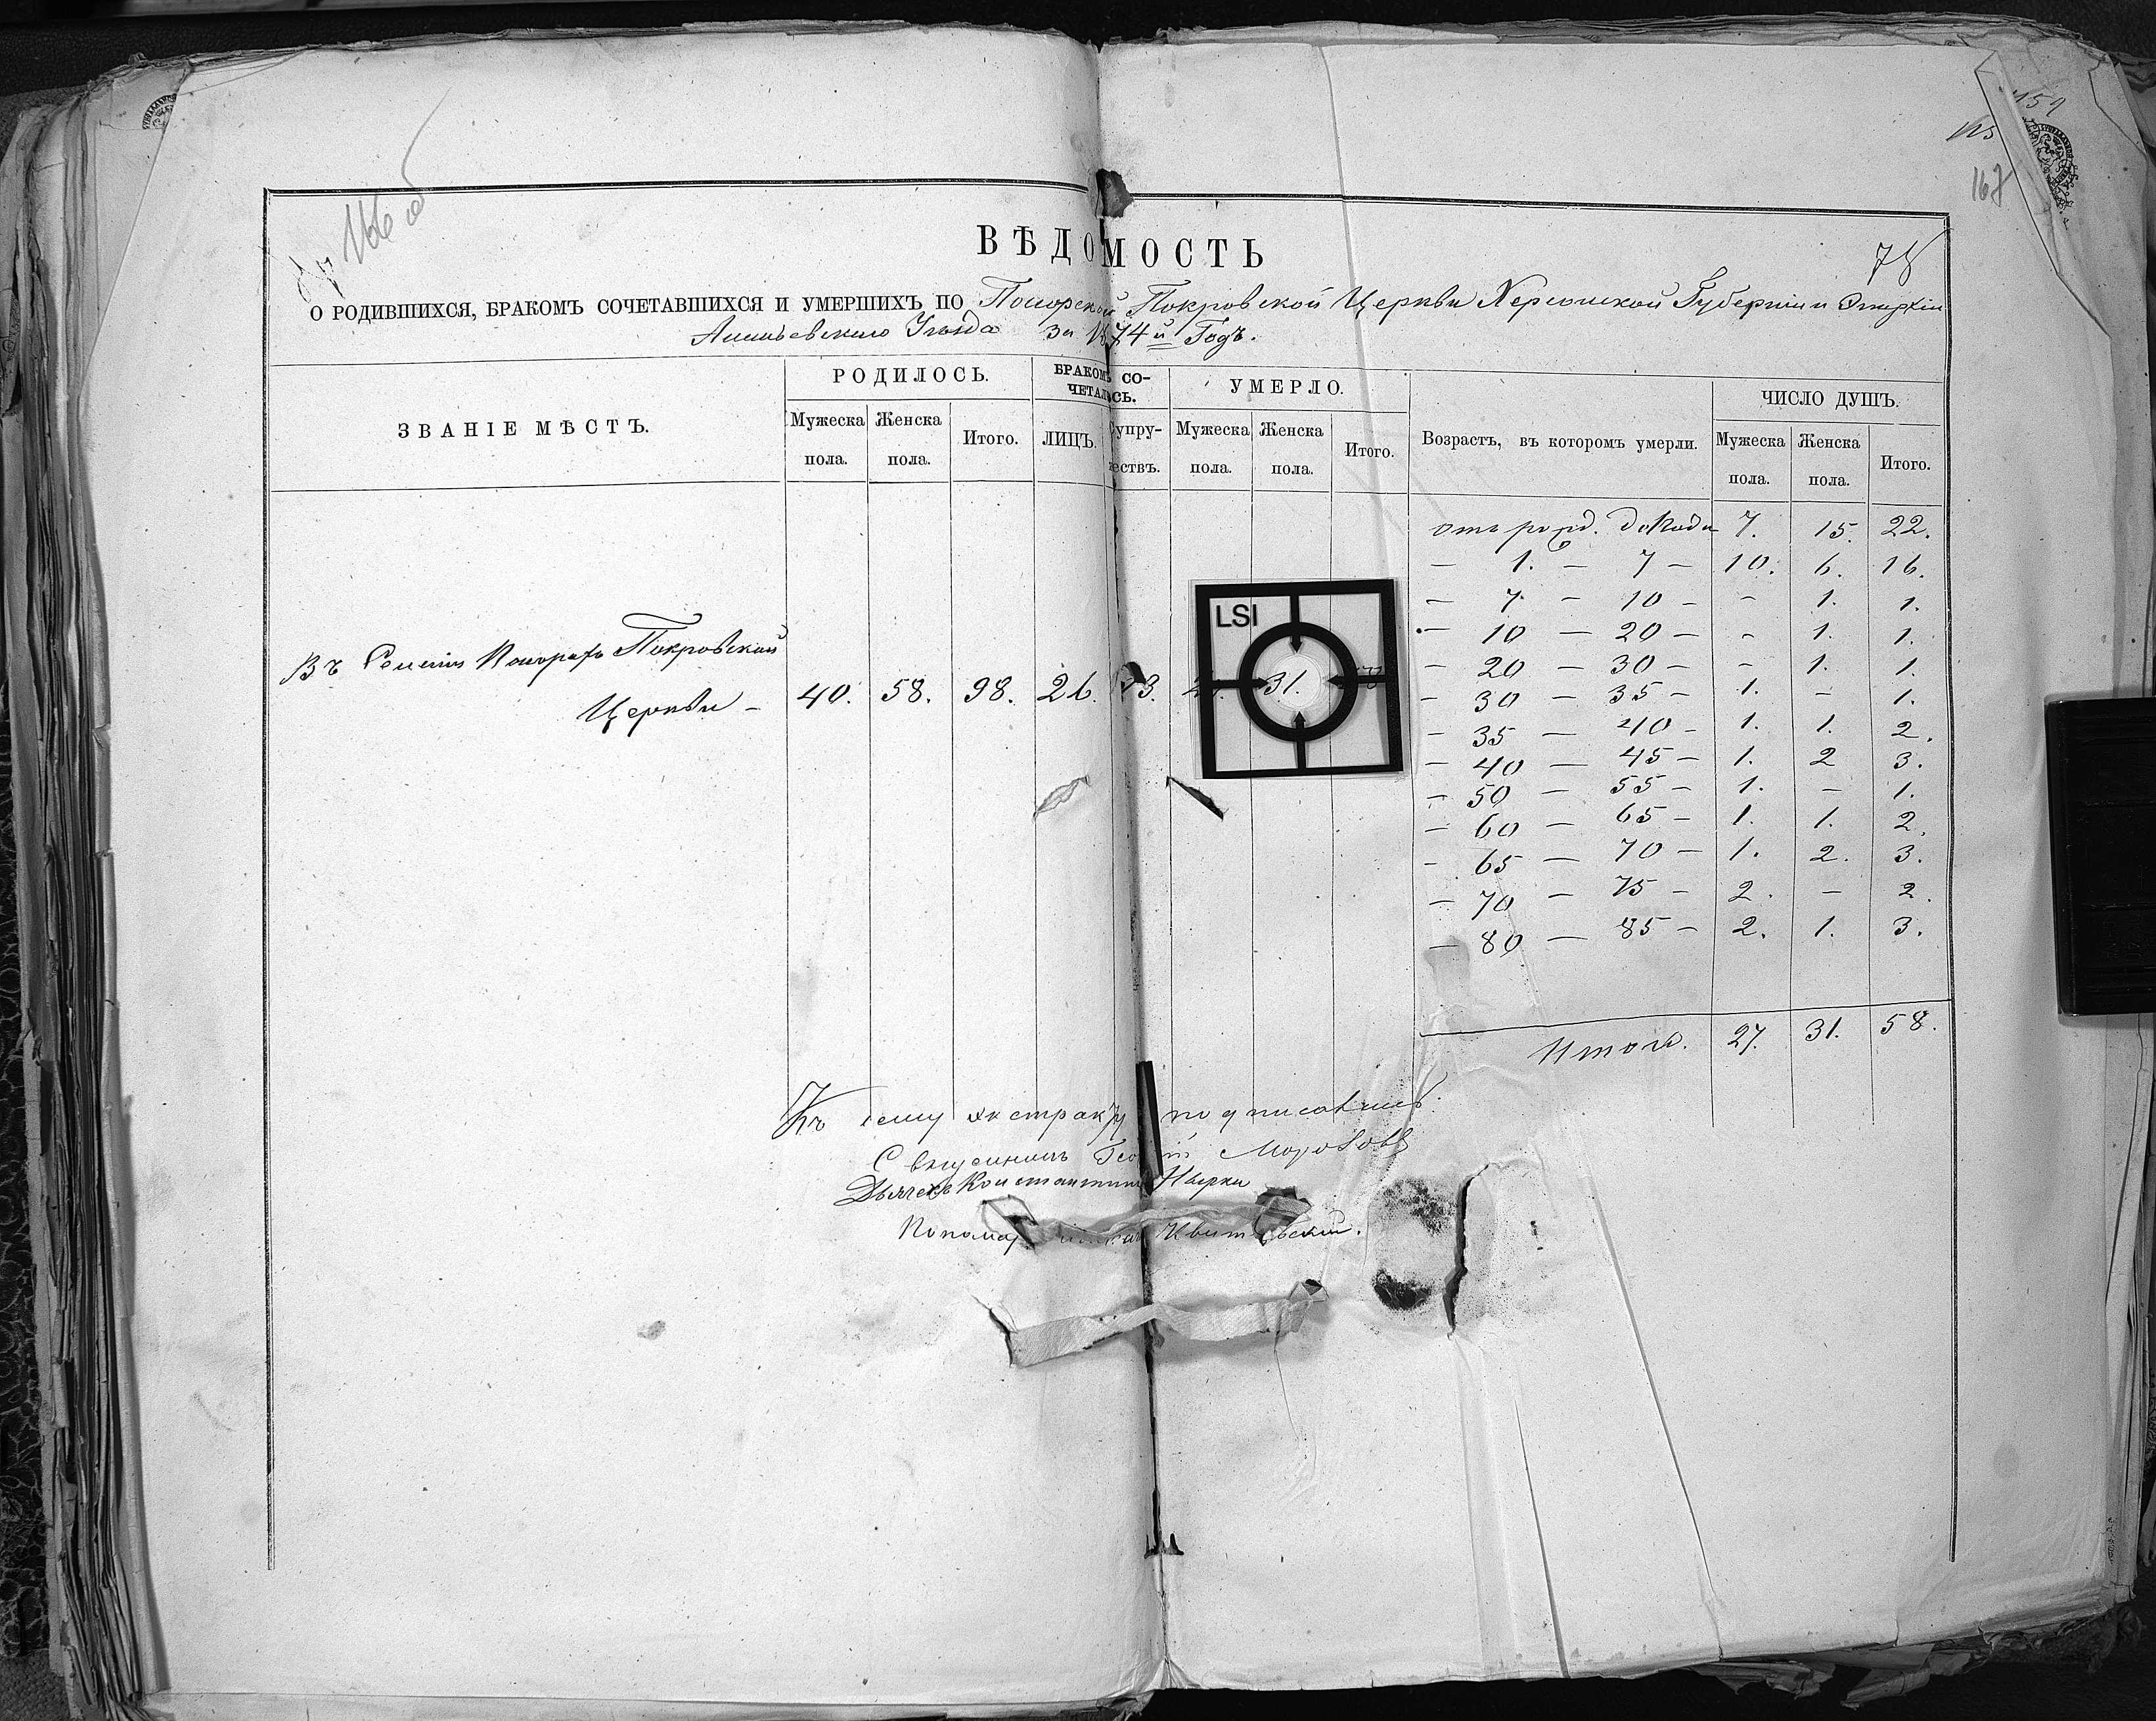 159
115
167
об 166
78
ВѢДОМОСТЬ
О РОДИВШИХСЯ, БРАКОМЪ СОЧЕТАВШИХСЯ И УМЕРШИХЪ ПО Покровской Церкви Херсонской Губерніи и Епархіи
Ананьевскаго Уѣзда за 1874й Годъ.
ЗВАНІЕ МѢСТЪ. РОДИЛОСЬ. БРАКОМЪ СОЧЕТАЛОСЬ. УМЕРЛО. Возрастъ, въ которомъ умерли. ЧИСЛО ДУШЪ.
Мужеска пола. Женска пола. Итого. ЛИЦЪ. Супружествъ. Мужеска пола. Женска пола. Итого. Мужеска пола. Женска пола. Итого.
отъ рожд. до 1 года 7. 15. 22.
— 1. — 7 — 10. 6. 16.
— 7. — 10 — – 1. 1.
— 10 — 20 — – 1. 1.
— 20 — 30 — – 1. 1.
— 30 — 35 — 1. – 1.
— 35 — 40 — 1. 1. 2.
— 40 — 45 — 1. 2 3.
— 50 — 55 — 1. – 1.
— 60 — 65 — 1. 1. 2.
— 65 — 70 — 1. 2. 3.
— 70 — 75 — 2. – 2.
— 80 — 85 — 2. 1. 3.
Въ Селеніи Покровской
Церкви – 40. 58. 98. 26. 13. 31.
LSI
Итого. 27. 31. 58.
Къ сему экстракту подписались:
Священникъ Морозовъ
Дьячекъ Константинъ